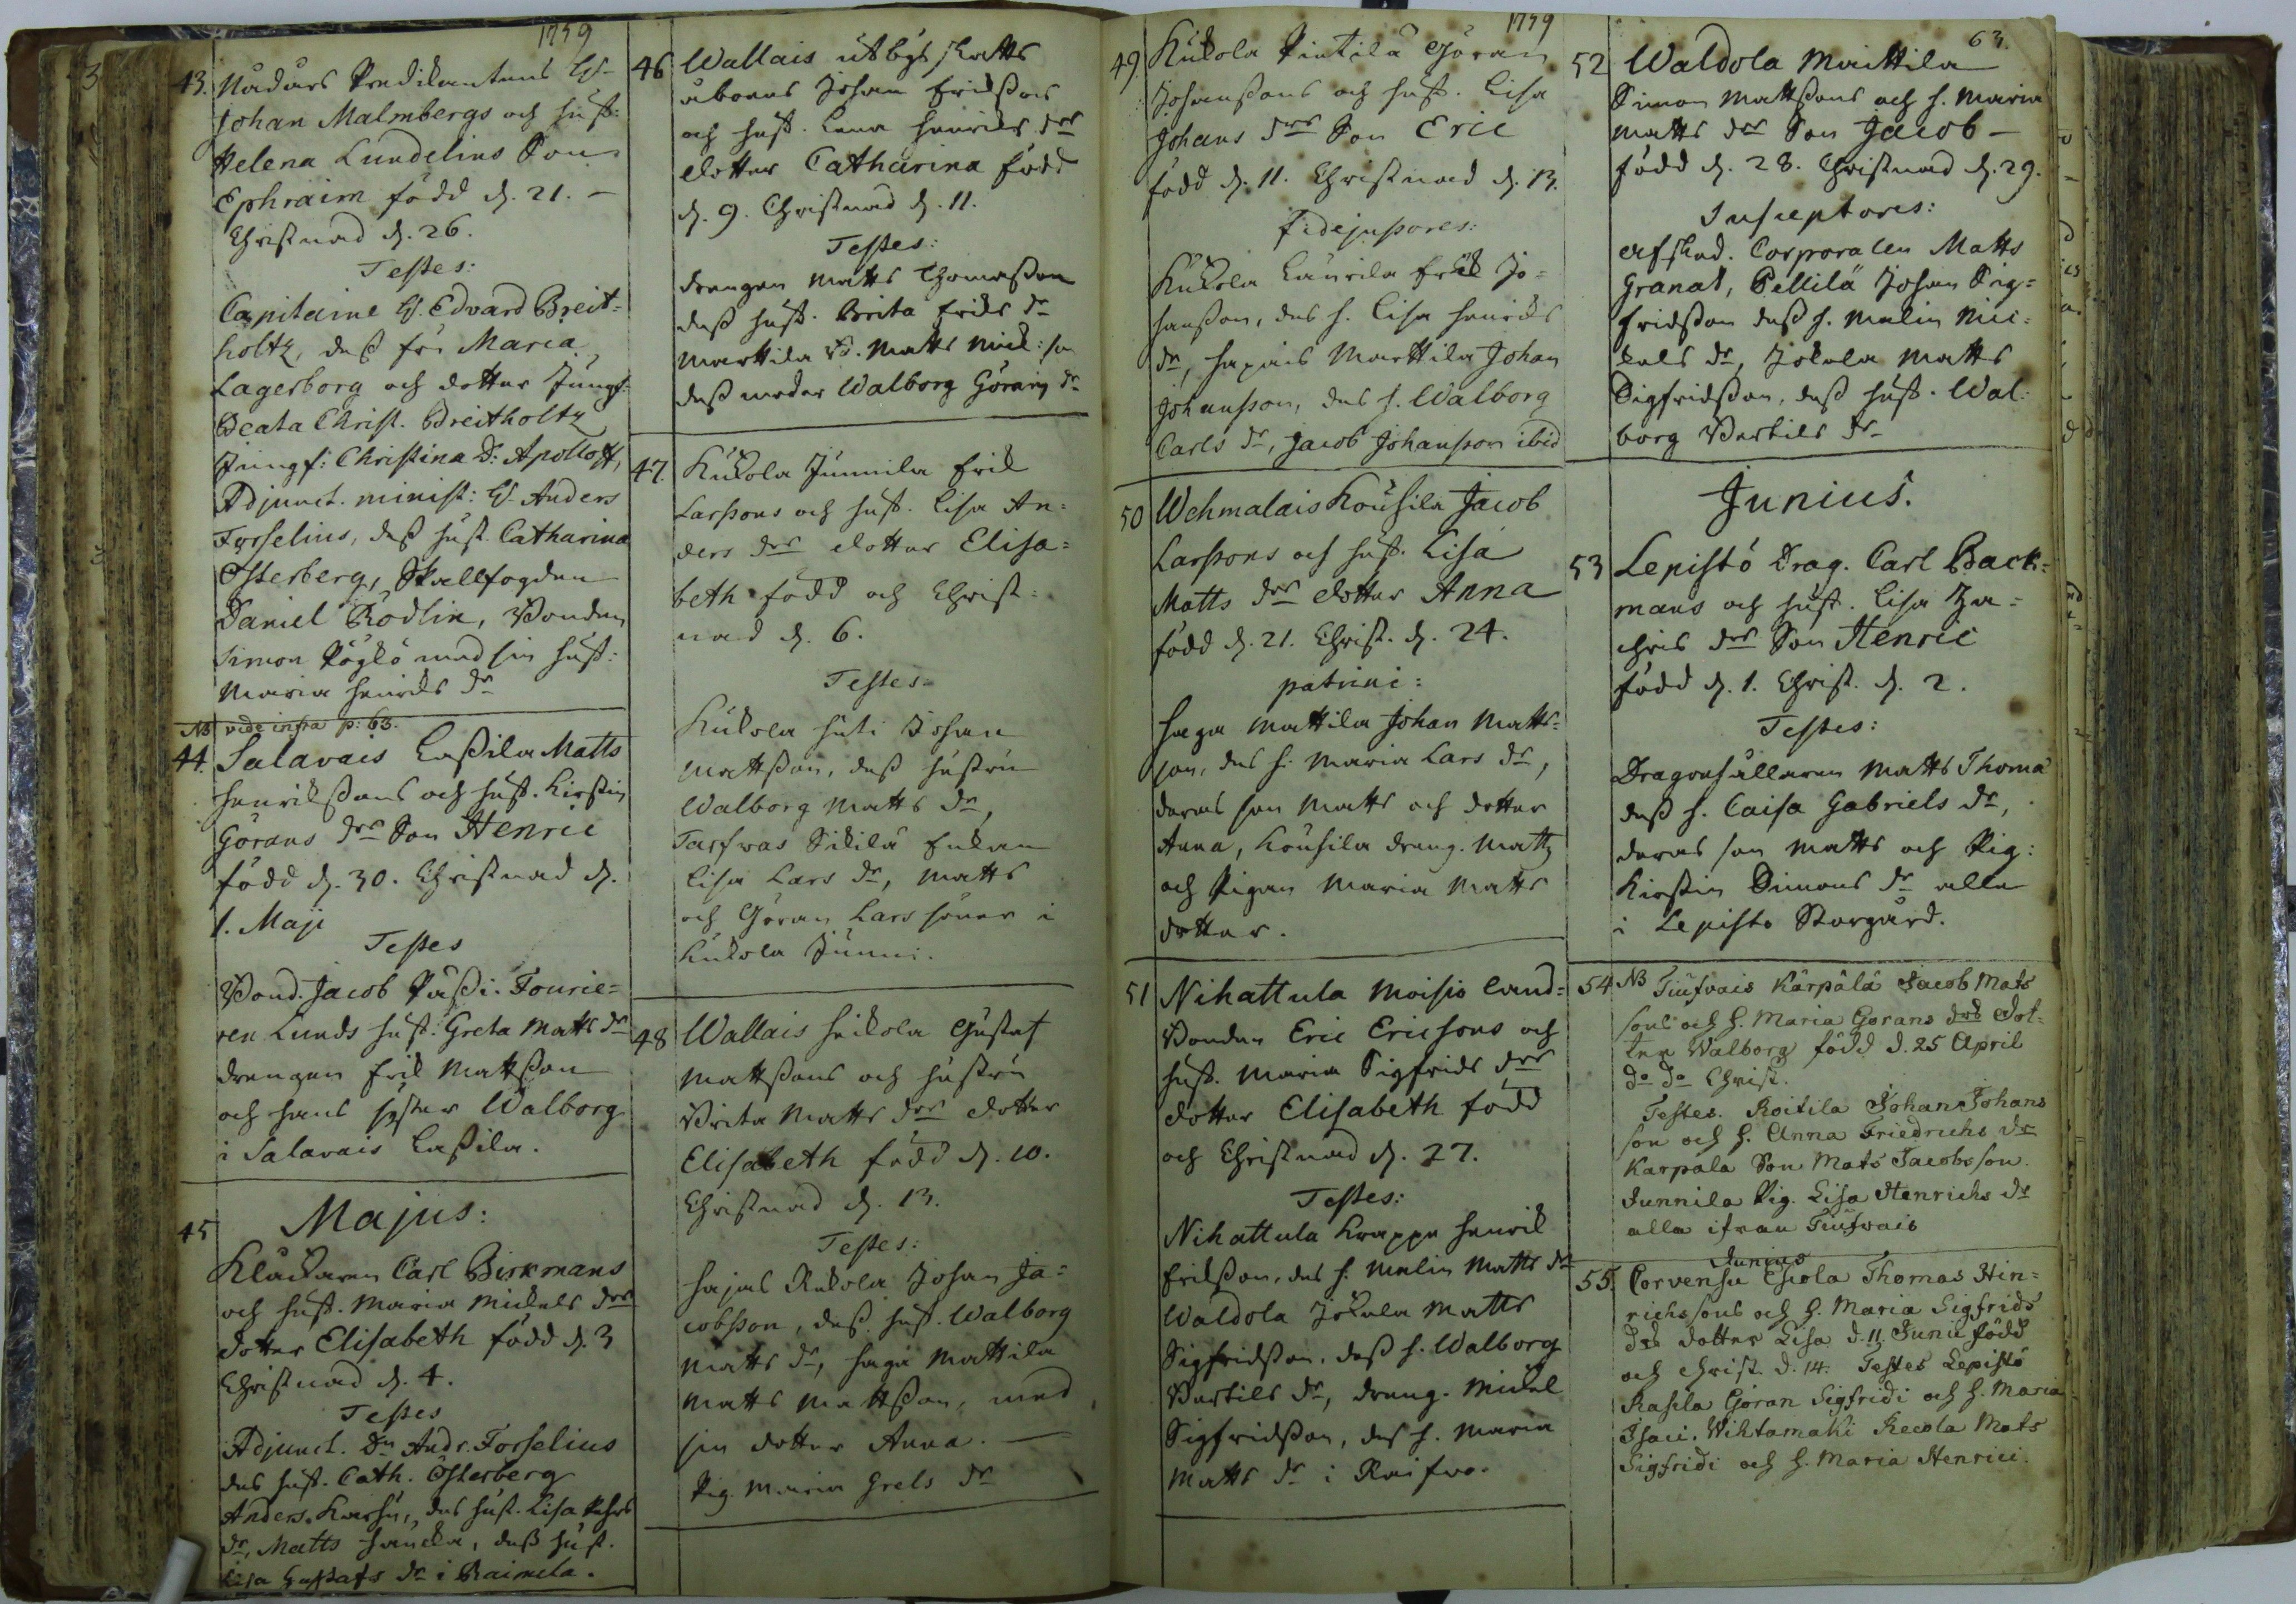 1759
43. Nådårs Predikantens H:
Johan Malmbergs och hust:
Helena Lundelius Son
Ephraim född d. 21. –
Christnad d. 26.
Testes:
Capitaine H. Edvard Breit=
holtz, dess fru Maria
Lagerborg och dotter Jungf.
Beata Christ. Breitholtz
Jungf: Christina D: Apolloff,
Adjunct. minist: H. Anders
Forselius, dess hust. Catharina
Österberg, Skallfogden
Daniel Rödlin, Bonden
Simon med sin hust:
Maria Henriks dr
NB vide infra p: 63.
44. Salavais Lassila Matts
Henrikssons och hust. Kirstin
Görans drs Son Henric
född d. 30. Christnad d.
1. Maji
Testes
Bond. Jacob Pässi. Fourie=
ren Lunds hust. Greta Matts dr
drengen Erik Mattsson
och hans syster Walborg
i Salavais Lassila.
Majus:
45 Klockaren Carl Birkmans
och hust. Maria Mickels drs
dotter Elisabeth född d. 3
Christnad d. 4.
Testes
Adjunct. Dn Andr. Forselius
des hust. Cath. Österberg
Anders Karhu, des hust. Lisa
dr, Matts Hancka, dess hust.
Lisa Gustafs dr i Raimela.
46 Wallais utbys skatts
åboens Johan Erikssons
och hust. Lena Henriks drs
dotter Catharina född
d. 9. Christnad d. 11.
Testes:
drengen Matts Thomasson
dess hust. Brita Eriks dr
Marttila B. Matts Mick: son
dess moder Walborg Görans dr
47. Kukola Junnila Erik
Larssons och hust. Lisa An=
ders drs dotter Elisa=
beth född och Christ=
nad d. 6.
Testes=
Kukola Huti Johan
Mattsson, dess hustru
Walborg Matts dr,
Tarfwas Sikilä Enkan
Lisa Lars dr, Matts
och Göran Lars söner i
Kukola Junni.
48 Wallais Heikola Gustaf
Mattssons och hustru
Brita Matts drs dotter
Elisabeth född d. 10.
Christnad d. 13.
Testes:
Hajas Rekola Johan Ja=
cobsson, dess hust. Walborg
Matts dr, Haga Mattila
Matts Mattsson, med
sin dotter Anna. –
Pig. Maria Grels dr
1759
49. Kukola Pintilä Göran
Johanssons och hust. Lisa
Johans drs Son Eric
född d. 11. Christnad d. 13.
Fidejussores:
Kukola Laurila Erik Jo=
hansson, des h. Lisa Henriks
dr, Hapais Marttila Johan
Johansson, des h. Walborg
Carls dr, Jacob Johansson ibid
50 Wehmalais Kousila Jacob
Larssons och hust. Lisa
Matts drs dotter Anna
född d. 21. Christ. d. 24.
patrini:
Haga Mattila Johan Matts=
son, des h. Maria Lars dr,
deras son Matts och dotter
Anna, Kousila dreng. Matts
och Pigan Maria Matts
dotter.
51 Nihattula Moisio Land=
Bonden Eric Ericsons och
hust. Maria Sigfrids drs
dotter Elisabeth född
och Christnad d. 27.
Testes:
Nihattula Krappe Henrik
Eriksson, des h. Malin Matts dr
Waldola Jokela Matts
Sigfridsson, dess h. Walborg
Bertils dr, dreng. Mickel
Sigfridsson, des h. Maria
Matts dr i Raifwo.
63.
52 Waldola Maittila
Simon Mattssons och h. Maria
Matts drs Son Jacob –
född d. 28. Christnad d. 29.
Susceptores:
Afskied. Corporalen Matts
Granat, Pellilä Johan Sig=
fridsson dess h. Malin Mic=
kels dr, Jokela Matts
Sigfridsson, dess hust. Wal=
borg Bertils dr
Junius.
53 Lepistö Drag. Carl Back=
mans och hust. Lisa Za=
chris drs Son Henric
född d. 1. Christ. d. 2.
Testes:
Dragonhållaren Matts Thoma
dess h. Caisa Gabriels dr,
deras son Matts och Pig:
Kirstin Simons dr alla
i Lepistö Storgård.
54 NB Tiufvais Kärpälä Jacob Mats
sons och h. Maria Gorans drs dot=
ter Walborg född d. 25 April
do do Christ.
Testes. Roitila Johan Johans
son och h. Anna Friedrichs dr
Karpala Son Mats Jacobsson.
Junnila Pig. Lisa Henrichs dr
alla ifrån Tiufvais
Junius
55. Corvensu Eskola Thomas Hin=
richssons och h. Maria Sigfrids
drs dotter Lisa d. 11 Junii född
och Christ. d. 14. Testes Lepistö
Rasila Göran Sigfridi och h. Maria
Isaci. Wihtamaki Recola Mats
Sigfridi och h. Maria Henrici.